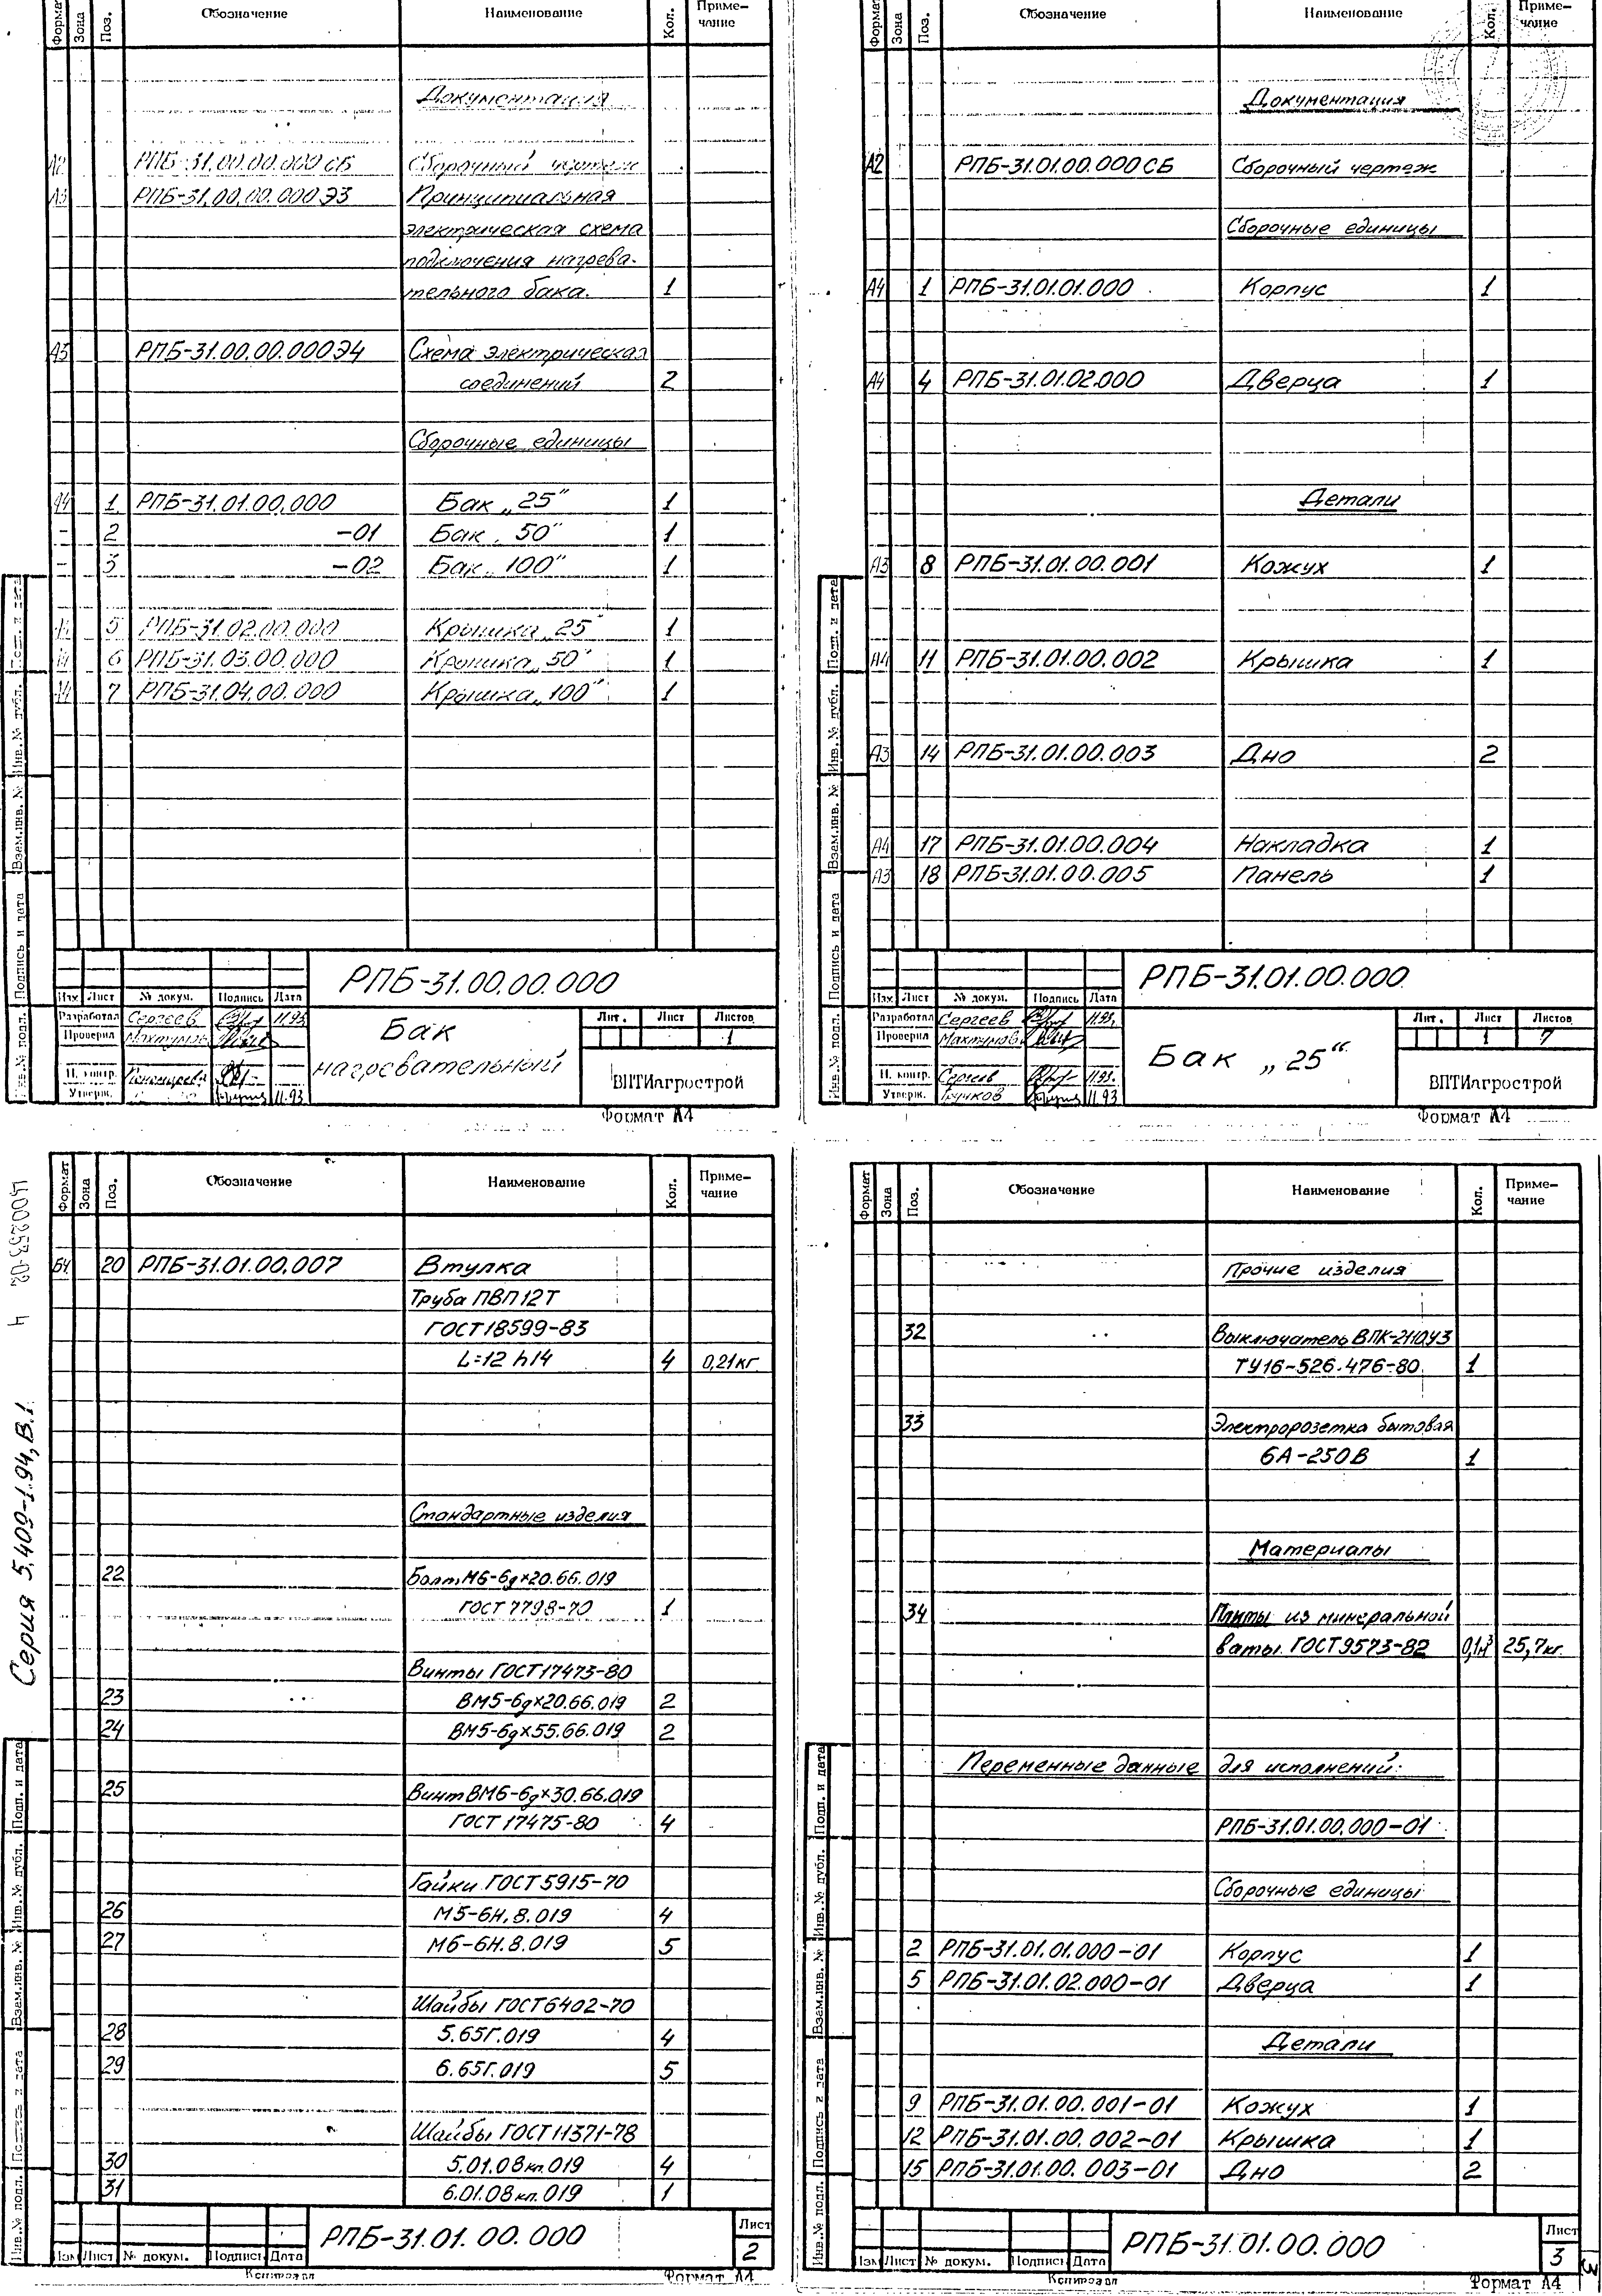 Формат Зона Поз. Обозначение Наименование Кол. Приме-
чание
Документация
А2 РПБ-31.00.00.000СБ Сборочный чертеж
А3 РПБ-31.00.00.000Э3 Принципиальная
электрическая схема
подключения нагрева-
тельного бака. 1
А3 РПБ-31.00.00.000Э4 Схема электрическая
соединений 2
Сборочные единицы
А4 1 РПБ-31.01.00.000 Бак „25" 1
- 2 -01 Бак „50" 1
- 3 -02 Бак „100" 1
А4 5 РПБ-31.02.00.000 Крышка „25" 1
А4 6 РПБ-31.03.00.000 Крышка „50" 1
А4 7 РПБ-31.04.00.000 Крышка „100" 1
Инв. № подл. Подпись и дата Взам.инв. № Инв. № дубл. Подп. и дата
РПБ-31.00.00.000
Изм. Лист № докум. Подпись Дата
Разработал Сергеев 11.93
Проверил Махтумов
Н. контр.
Утверж. 11.93
Бак
нагревательный
Лит. Лист Листов
1
ВПТИагрострой
Формат А4
Формат Зона Поз. Обозначение Наименование Кол. Приме-
чание
Документация
А2 РПБ-31.01.00.000СБ Сборочный чертеж
Сборочные единицы
А4 1 РПБ-31.01.01.000 Корпус 1
А4 4 РПБ-31.01.02.000 Дверца 1
Детали
А3 8 РПБ-31.01.00.001 Кожух 1
А4 11 РПБ-31.01.00.002 Крышка 1
А3 14 РПБ-31.01.00.003 Дно 2
А4 17 РПБ-31.01.00.004 Накладка 1
А3 18 РПБ-31.01.00.005 Панель 1
Инв. № подл. Подпись и дата Взам.инв. № Инв. № дубл. Подп. и дата
РПБ-31.01.00.000
Изм. Лист № докум. Подпись Дата
Разработал Сергеев 11.93.
Проверил Махтумов
Н. контр. Сергеев 11.93.
Утверж. Гучков 11.93
Бак „25"
Лит. Лист Листов
1 7
ВПТИагрострой
Формат А4
Серия 5.409-1.94, В.1
Формат Зона Поз. Обозначение Наименование Кол. Приме-
чание
БЧ 20 РПБ-31.01.00.007 Втулка
Труба ПВП12Т
ГОСТ18599-83
L=12 h14 4 0,21кг
Стандартные изделия
22 Болт М6-6g×20.66.019
ГОСТ 7798-70 1
Винты ГОСТ17473-80
23 ВМ5-6g×20.66.019 2
24 ВМ5-6g×55.66.019 2
25 Винт ВМ6-6g×30.66.019
ГОСТ 17475-80 4
Гайки ГОСТ5915-70
26 М5-6Н.8.019 4
27 М6-6Н.8.019 5
Шайбы ГОСТ6402-70
28 5.65Г.019 4
29 6.65Г.019 5
Шайбы ГОСТ11371-78
30 5.01.08кп.019 4
31 6.01.08кп.019 1
Инв.№ подл. Подпись и дата Взам.инв. № Инв.№ дубл. Подп. и дата
РПБ-31.01.00.000
Изм Лист № докум. Подпись Дата
Лист
2
Копировал Формат А4
Формат Зона Поз. Обозначение Наименование Кол. Приме-
чание
Прочие изделия
32 Выключатель ВПК-2110У3
ТУ16-526.476-80 1
33 Электророзетка бытовая
6А-250В 1
Материалы
34 Плиты из минеральной
ваты ГОСТ9573-82 0,1м³ 25,7кг.
Переменные данные для исполнений:
РПБ-31.01.00.000-01
Сборочные единицы
2 РПБ-31.01.01.000-01 Корпус 1
5 РПБ-31.01.02.000-01 Дверца 1
Детали
9 РПБ-31.01.00.001-01 Кожух 1
12 РПБ-31.01.00.002-01 Крышка 1
15 РПБ-31.01.00.003-01 Дно 2
Инв.№ подл. Подпись и дата Взам.инв. № Инв.№ дубл. Подп. и дата
РПБ-31.01.00.000
Изм Лист № докум. Подпись Дата
Лист
3
Копировал Формат А4
3